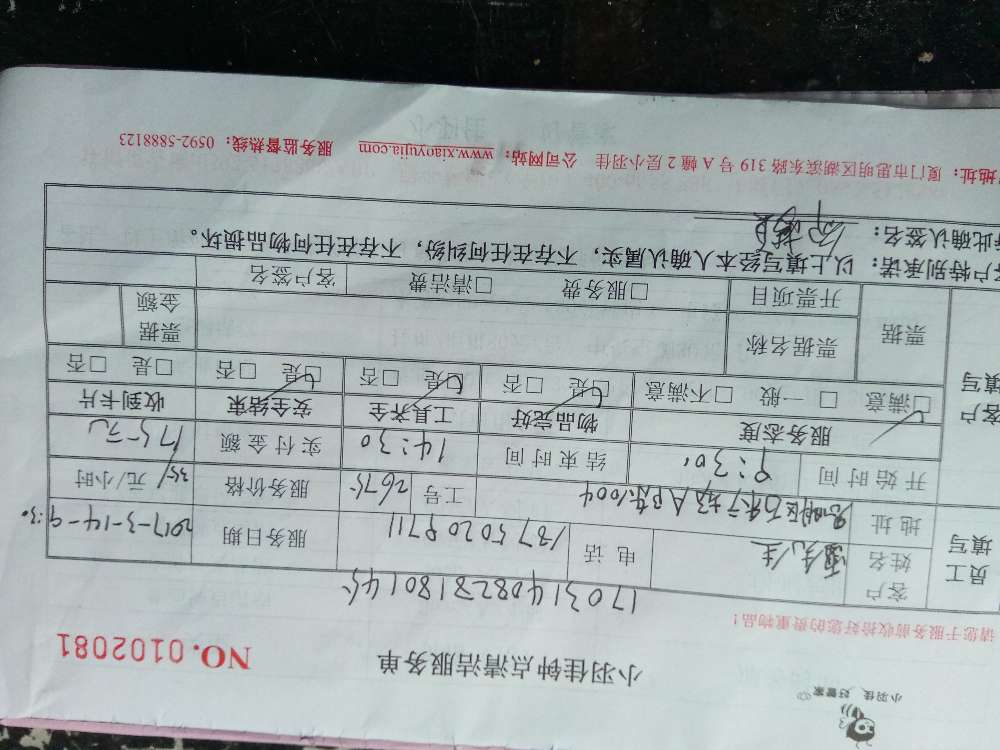 小羽佳 好管家
小羽佳钟点清洁服务单 NO.0102081
请您于服务前收拾好您的贵重物品!
170314082318014
员工填写 客户姓名 先生 电话 13750209711 服务日期 2017-3-14-9:30
地址 1004 工号 2675 服务价格 35/元/小时
开始时间 9:30 结束时间 14:30 实付金额 175元
客户填写 服务态度 物品完好 工具齐全 安全结束 收到卡片
☑满意 □一般 □不满意 ☑是 □否 ☑是 □否 ☑是 □否 □是 □否
票据 票据名称 票据金额
开票项目 □服务费 □清洁费 客户签名
客户特别承诺:以上填写经本人确认属实,不存在任何纠纷,不存在任何物品损坏。
在此确认签名:
地址:厦门市思明区湖滨东路 319 号 A 幢 2 层小羽佳 公司网站:www.xiaoyujia.com 服务监督热线:0592-5888123